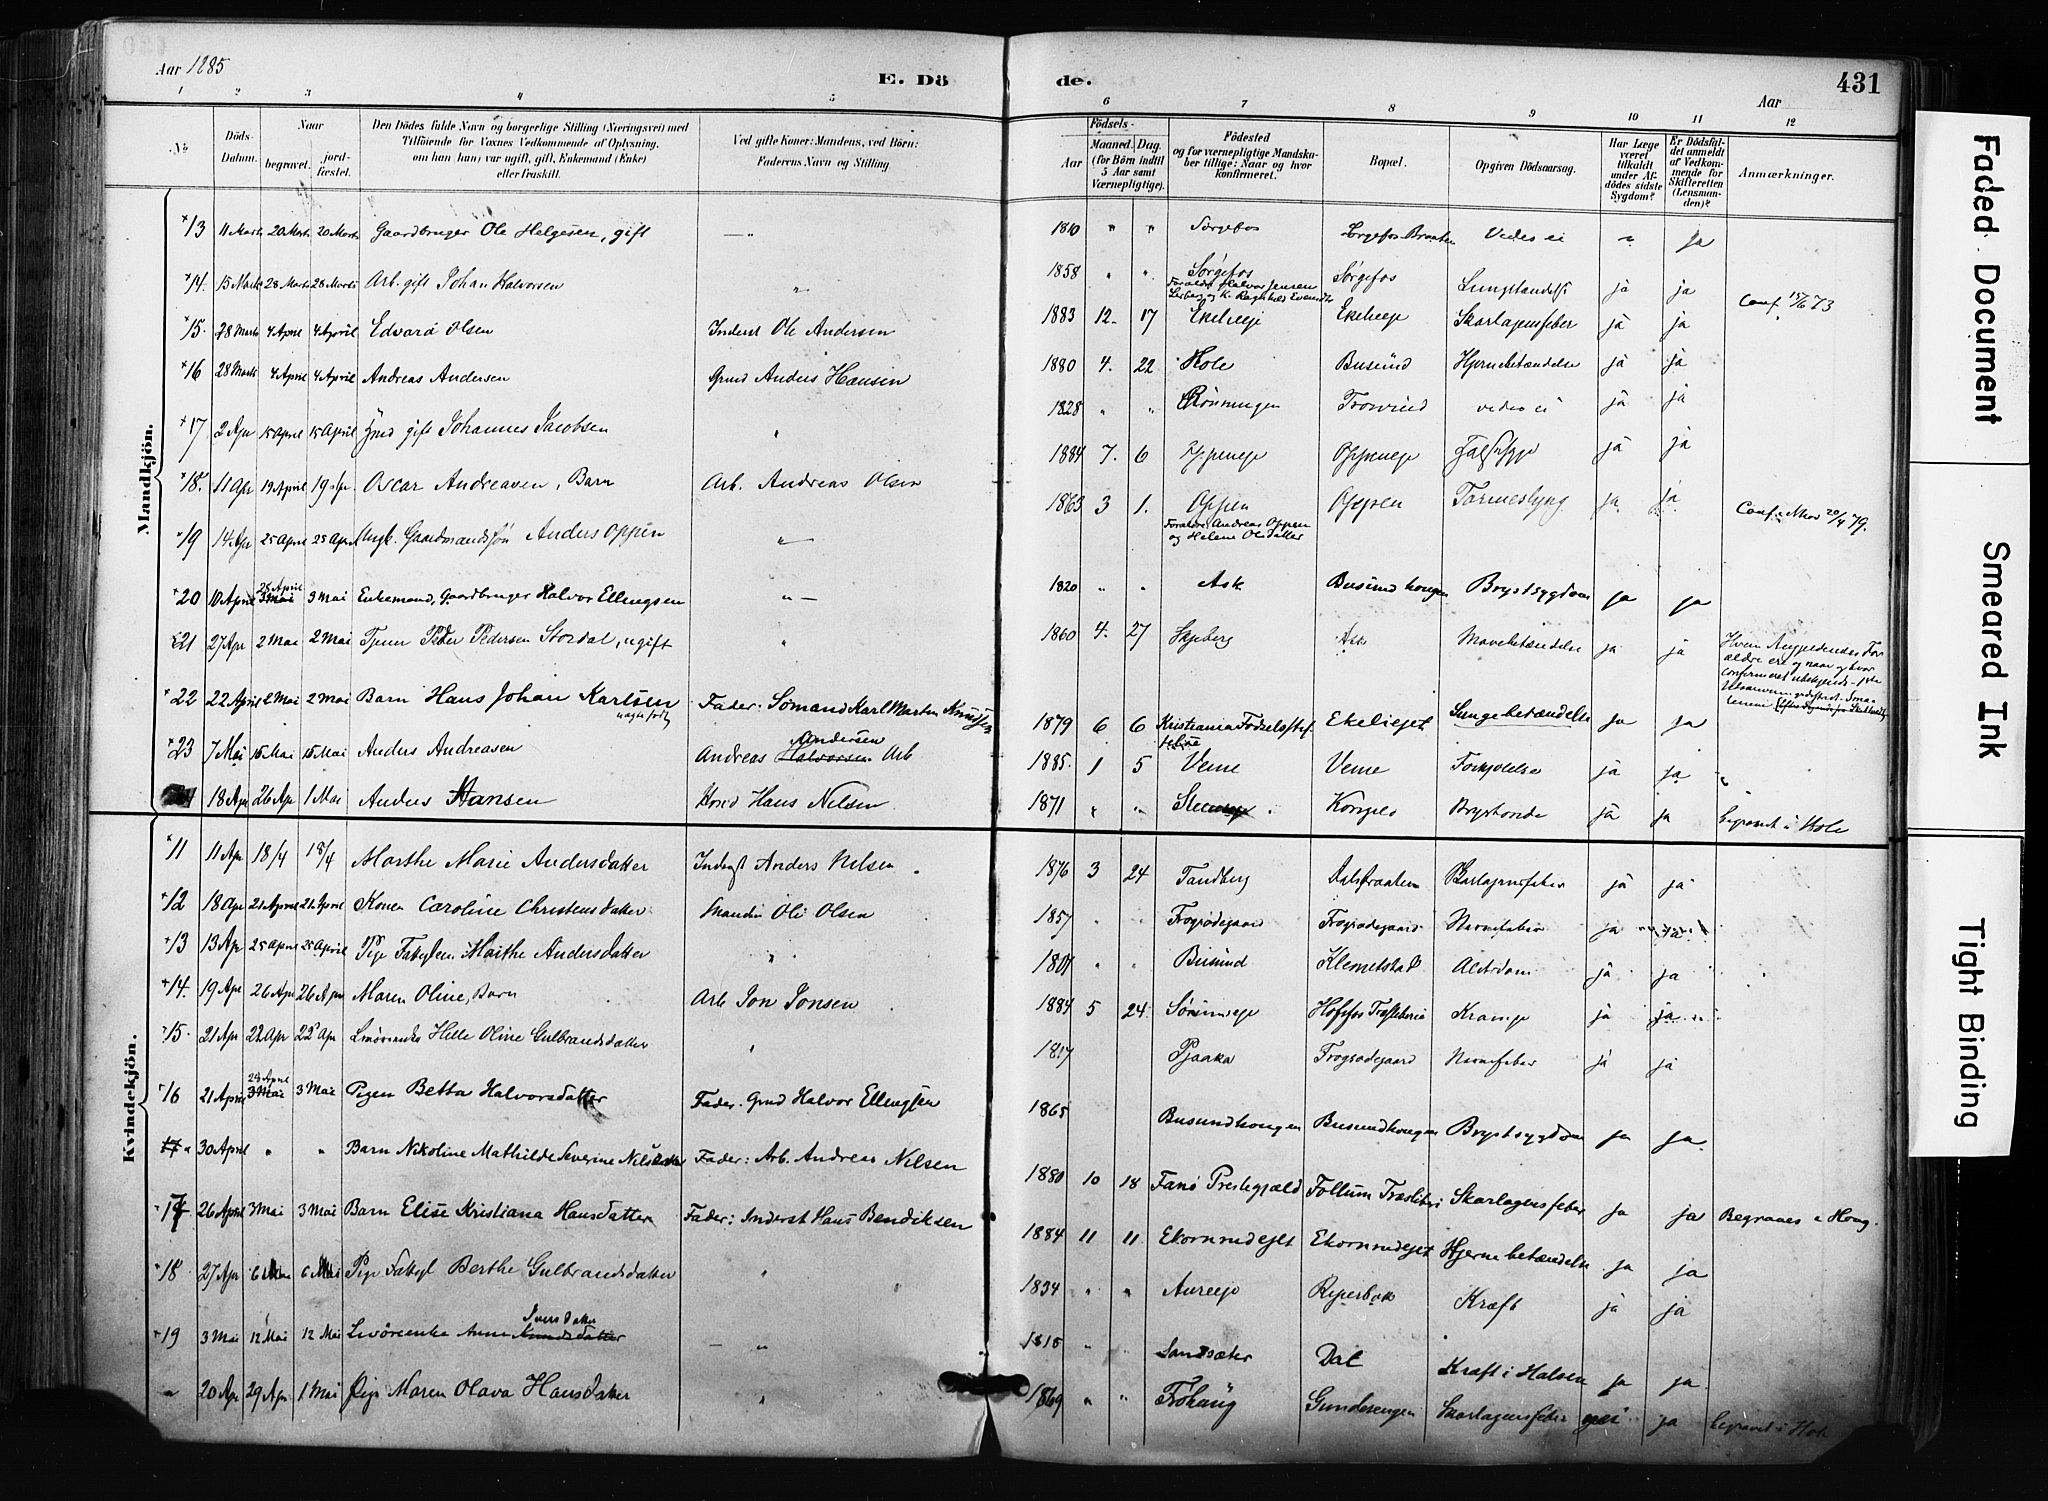 Aar 1885
E. Döde.
431
Aar
1 2 3 4 5 6 7 8 9 10 11 12
No
Döds-Datum.
Naar
begravet.
jord-fæstet.
Den Dödes fulde Navn og borgerlige Stilling (Næringsvei) med
Tilföiende for Voxnes Vedkommende af Oplysning,
om han (hun) var ugift, gift, Enkemand (Enke)
eller fraskilt.
Ved gifte Koner: Mandens, ved Börn:
Faderens Navn og Stilling.
Födsels-
Aar
Maaned. Dag.
(for Börn indtil
5 Aar samt
Værnepligtige).
Födested
og for værnepligtige Mandska-
ber tillige: Naar og hvor
konfirmeret.
Bopæl.
Opgiven Dödsaarsag.
Har Læge
været
tilkaldt
under Af-
dödes sidste
Sygdom?
Er Dödsfal-
det anmeldt
af Vedkom-
mende for
Skifteretten
(Lensman-
den)?
Anmærkninger.
Mandkjön.
13 11 Marts 20 Mart 20 Marts Gaardbruger Ole Helgesen, gift — " 1810 " " Sørgefos Sørgefos Braaten Vedes ei " ja
14. 15 Marts 28 Marts 28 Marts Arb. gift Johan Halvorsen " 1858 " " Sørgefos Sørgefos ja ja Conf. 15/6 73
Foraldre Halvor Jensen
15. 28 Marts 4 April 4 April Edvard Olsen Inderst Ole Andersen 1883 12. 17 Ekeleje Ekeleje Skarlagensfeber ja ja
16 28 Marts 4 April 4 April Andreas Andersen Grmd Anders Hansen 1880 4. 22 Hole Busund Hjernebetændelse ja ja
17 2 Apr 15 April 15 April gift Johannes Jacobsen " 1828 " " Rönningen vedes ei ja ja
18. 11 Apr 19 April 19 Apr Oscar Andreasen, Barn Arb. Andreas Olsen 1884 7. 6 ja ja
19 14 Apr 25 April 25 April Ungk. Gaardmandssøn Anders Oppen " 1863 3 1. Oppen Oppen ja ja Conf. 20/4 79.
Foraldre Andreas Oppen
og Helene Olsdatter
20 10 April 25 April 3 Mai 3 Mai Enkemand, Gaardbruger Halvor Ellingsen " — 1820 " " Ask Busundhougen Brystsygdom ja ja
21 27 Apr 2 Mai 2 Mai Peder Pedersen Stordal, ugift " 1860 4. 27 Skjeberg Ask Mavebetændelse ja ja
22 22 April 2 Mai 2 Mai Barn Hans Johan Karlsen uægte født Fader: Sømand Karl Martin Knudsen 1879 6 6 Kristiania Fødselsstiftelse Ekeliejet Lungebetændelse ja ja
23 7 Mai 15 Mai 15 Mai Anders Andreasen Andreas Andersen Halvorsen Arb 1885. 1 5 Veme Veme Forkjølelse ja ja "
18 Apr 26 Apr 1 Mai Anders Hansen Hans Nilsen 1871 " " Brystonde ja ja Begravet i Hole
Kvindekjön.
11 11 Apr 18/4 18/4 Marthe Marie Andersdatter Inderst Anders Nilsen 1876 3 24 Tandberg Dalsbraaten Skarlagensfeber ja ja
12 18 Apr 21 April 21 April Konen Caroline Christensdatter Manden Ole Olsen 1857 " " Frogsødegaard Frogsødegaard Nervefeber ja ja
13 13 Apr 25 April 25 April Pige Fattiglem Marthe Andersdatter " " " Busund Klemetstad Alderdom ja ja
14. 19 Apr 26 Apr 26 Apr Maren Oline, Barn Arb Jon Jonsen 1884 5 24. Hofsfos Træsliberi Krampe ja ja
15. 21 Apr 22 Apr 22 Apr Helle Oline Gulbrandsdatter " 1817 Pjaaka Frogsødegaard Nervefeber ja ja
16 21 April 24 April 3 Mai 3 Mai Pigen Betta Halvorsdatter Fader: Grmd Halvor Ellingsen 1865 Busundhougen Busundhougen Brystsygdom ja ja
17 " 30 April " " Barn Nikoline Mathilde Severine Nilsdatter Fader: Arb. Andreas Nilsen 1880 10 18 Fanø Prestegjæld Follum Træsliberi Skarlagensfeber ja ja Begraves i Houg.
17 26 April 3 Mai 3 Mai Barn Elise Kristiana Hansdatter Fader: Inderst Hans Bendiksen 1884 11 11 Ekornrudejet Ekornrudejet Hjernebetændelse ja ja
18 27 Apr 6 Mai 6 Mai Pige Fattigl Berthe Gulbrandsdatter " 1834 " " Kræft ja ja
19 3 Mai 12 Mai 12 Mai Anne Iversdatter — " 1815 " Sandsæter Dal Kræft i Halsen ja ja
" 20 Apr 29 Apr 1 Mai Pige Maren Olava Hansdatter " 1869 " " Frohaug Gunderengen Skarlagensfeber ja Begravet i Hole
Faded Document
Smeared Ink
Tight Binding